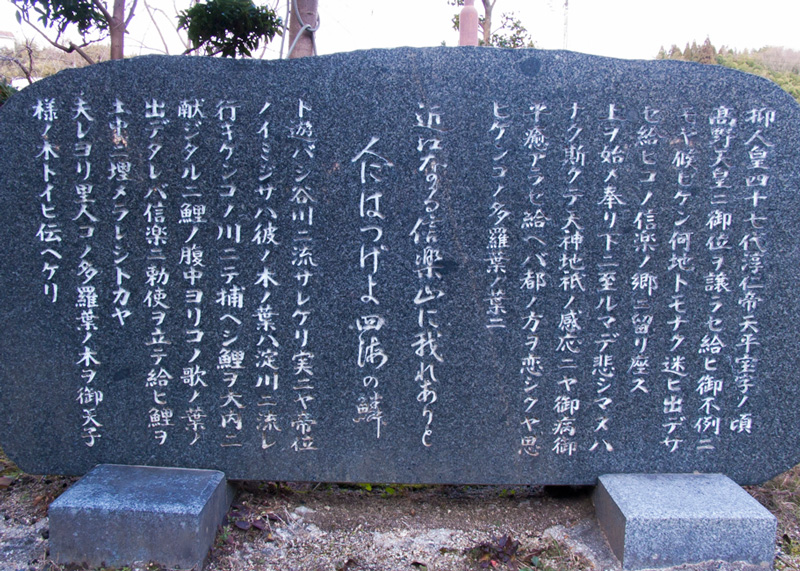 抑人皇四十七代淳仁帝天平宝字ノ頃
高野天皇ニ御位ヲ譲ラセ給ヒ御不例ニ
モヤ候ヒケン何地トモナク迷ヒ出デサ
セ給ヒコノ信楽ノ郷ニ留リ座ス
上ヲ始メ奉リ下ニ至ルマデ悲シマスハ
ナク斯クテ天神地祇ノ感応ニヤ御病御
平癒アラセ給ヘバ都ノ方ヲ恋シクヤ思
ヒケンコノ多羅葉ノ葉ニ
近江なる信楽山に我れありと
人にはつげよ四海の鱗
ト遊バシ谷川ニ流サレケリ実ニヤ帝位
ノイミジサハ彼ノ木ノ葉ハ淀川ニ流レ
行キケンコノ川ニテ捕ヘシ鯉ヲ大内ニ
献ジタルニ鯉ノ腹中ヨリコノ歌ノ葉ノ
出デタレバ信楽ニ勅使ヲ立テ給ヒ鯉ヲ
土中ニ埋メラレシトカヤ
夫レヨリ里人コノ多羅葉ノ木ヲ御天子
様ノ木トイヒ伝ヘケリ